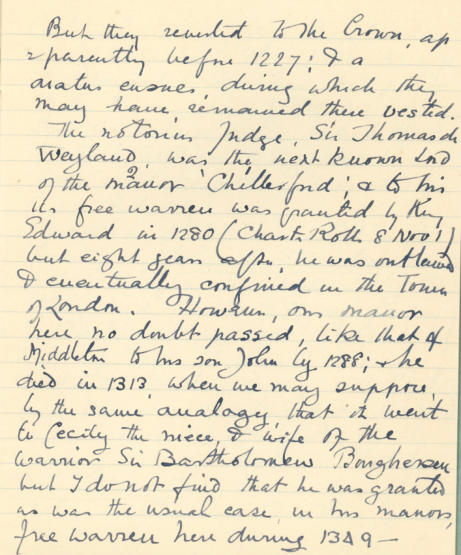 But they reverted to the Crown, ap
= parently before 1227; & a
hiatus ensues, during which they
may have remained there vested.
The notorious Judge, Sir Thomas de
Weyland, was the next known Lord
of the manor 'Chillerford'; & to his
its free warren was granted by King
Edward in 1280 (Charts Rolls 8 Nov 1)
but eight years after, he was outlawed
& eventually confined in the Tower
of London. However, our manor
here no doubt passed, like that of
Middleton to his son John by 1288; & he
died in 1313 when we may suppose,
by the same analogy, that it went
to Cecily the niece, & wife of the
warrior Sir Bartholomew Burghersh
but I do not find that he was granted
as was the usual case, in his manors,
free warren here during 1349 —